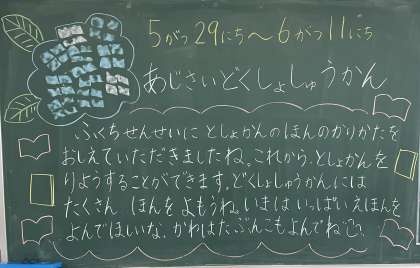 5がつ29にち～6がつ11にち
あじさいどくしょしゅうかん
ふくちせんせいに としょかんのほんのかりかたを
おしえていただきましたね。これから、としょかんを
りようすることができます。どくしょしゅうかんには
たくさん ほんをよもうね。いまは いっぱいえほんを
よんでほしいな。かわはたぶんこもよんでね